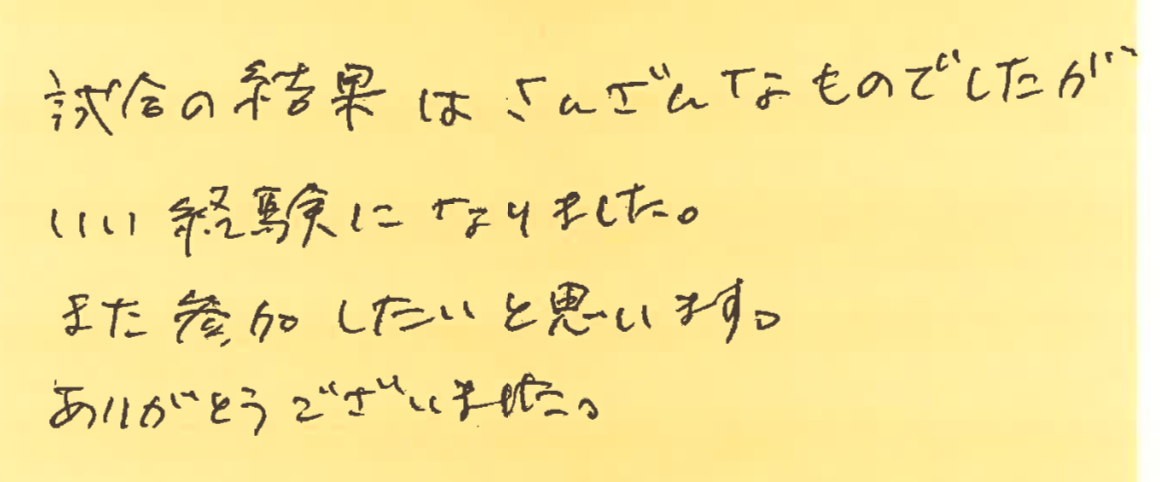 試合の結果はさんざんなものでしたが
いい経験になりました。
また参加したいと思います。
ありがとうございました。